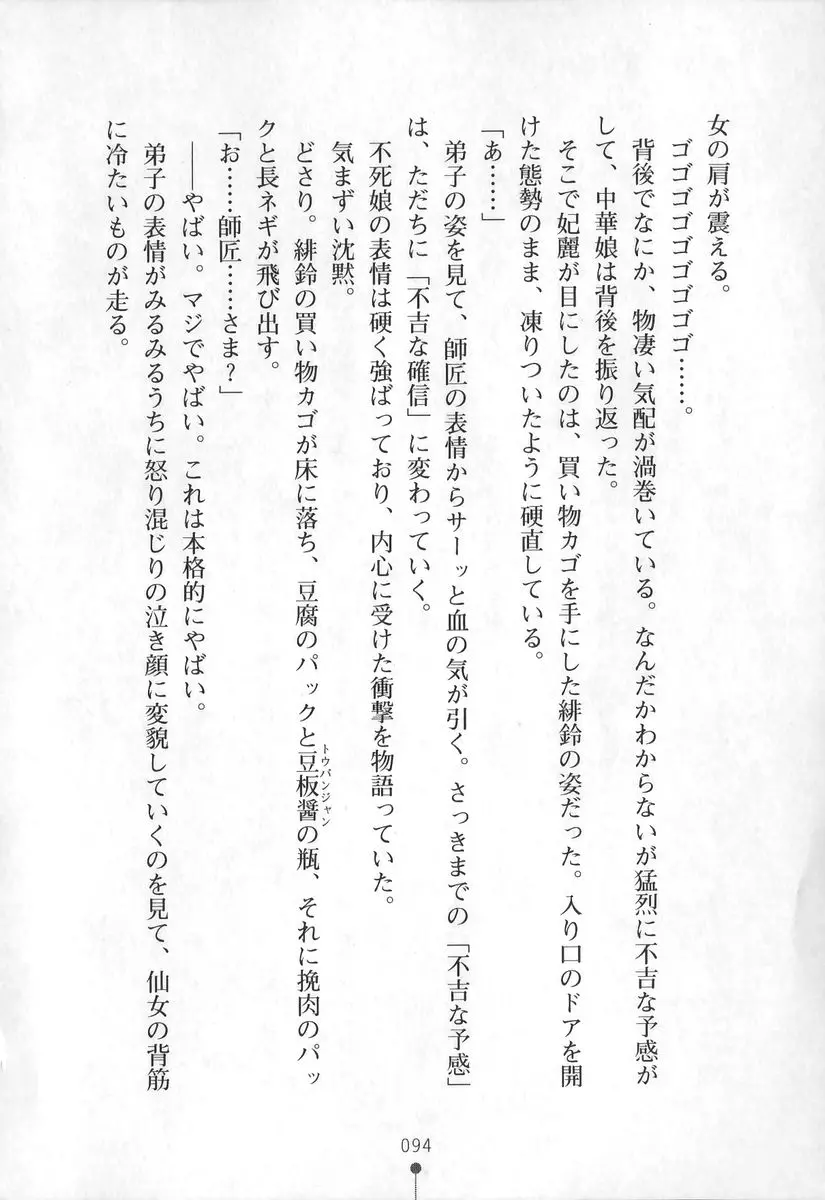 女の肩が震える。
ゴゴゴゴゴゴゴゴゴ……。
背後でなにか、物凄い気配が渦巻いている。なんだかわからないが猛烈に不吉な予感が
して、中華娘は背後を振り返った。
そこで妃麗が目にしたのは、買い物カゴを手にした緋鈴の姿だった。入り口のドアを開
けた態勢のまま、凍りついたように硬直している。
「あ……」
弟子の姿を見て、師匠の表情からサーッと血の気が引く。さっきまでの「不吉な予感」
は、ただちに「不吉な確信」に変わっていく。
不死娘の表情は硬く強ばっており、内心に受けた衝撃を物語っていた。
気まずい沈黙。
どさり。緋鈴の買い物カゴが床に落ち、豆腐のパックと豆板醤の瓶、それに挽肉のパッ
トウバンジャン
クと長ネギが飛び出す。
「お……師匠……さま？」
――やばい。マジでやばい。これは本格的にやばい。
弟子の表情がみるみるうちに怒り混じりの泣き顔に変貌していくのを見て、仙女の背筋
に冷たいものが走る。
094